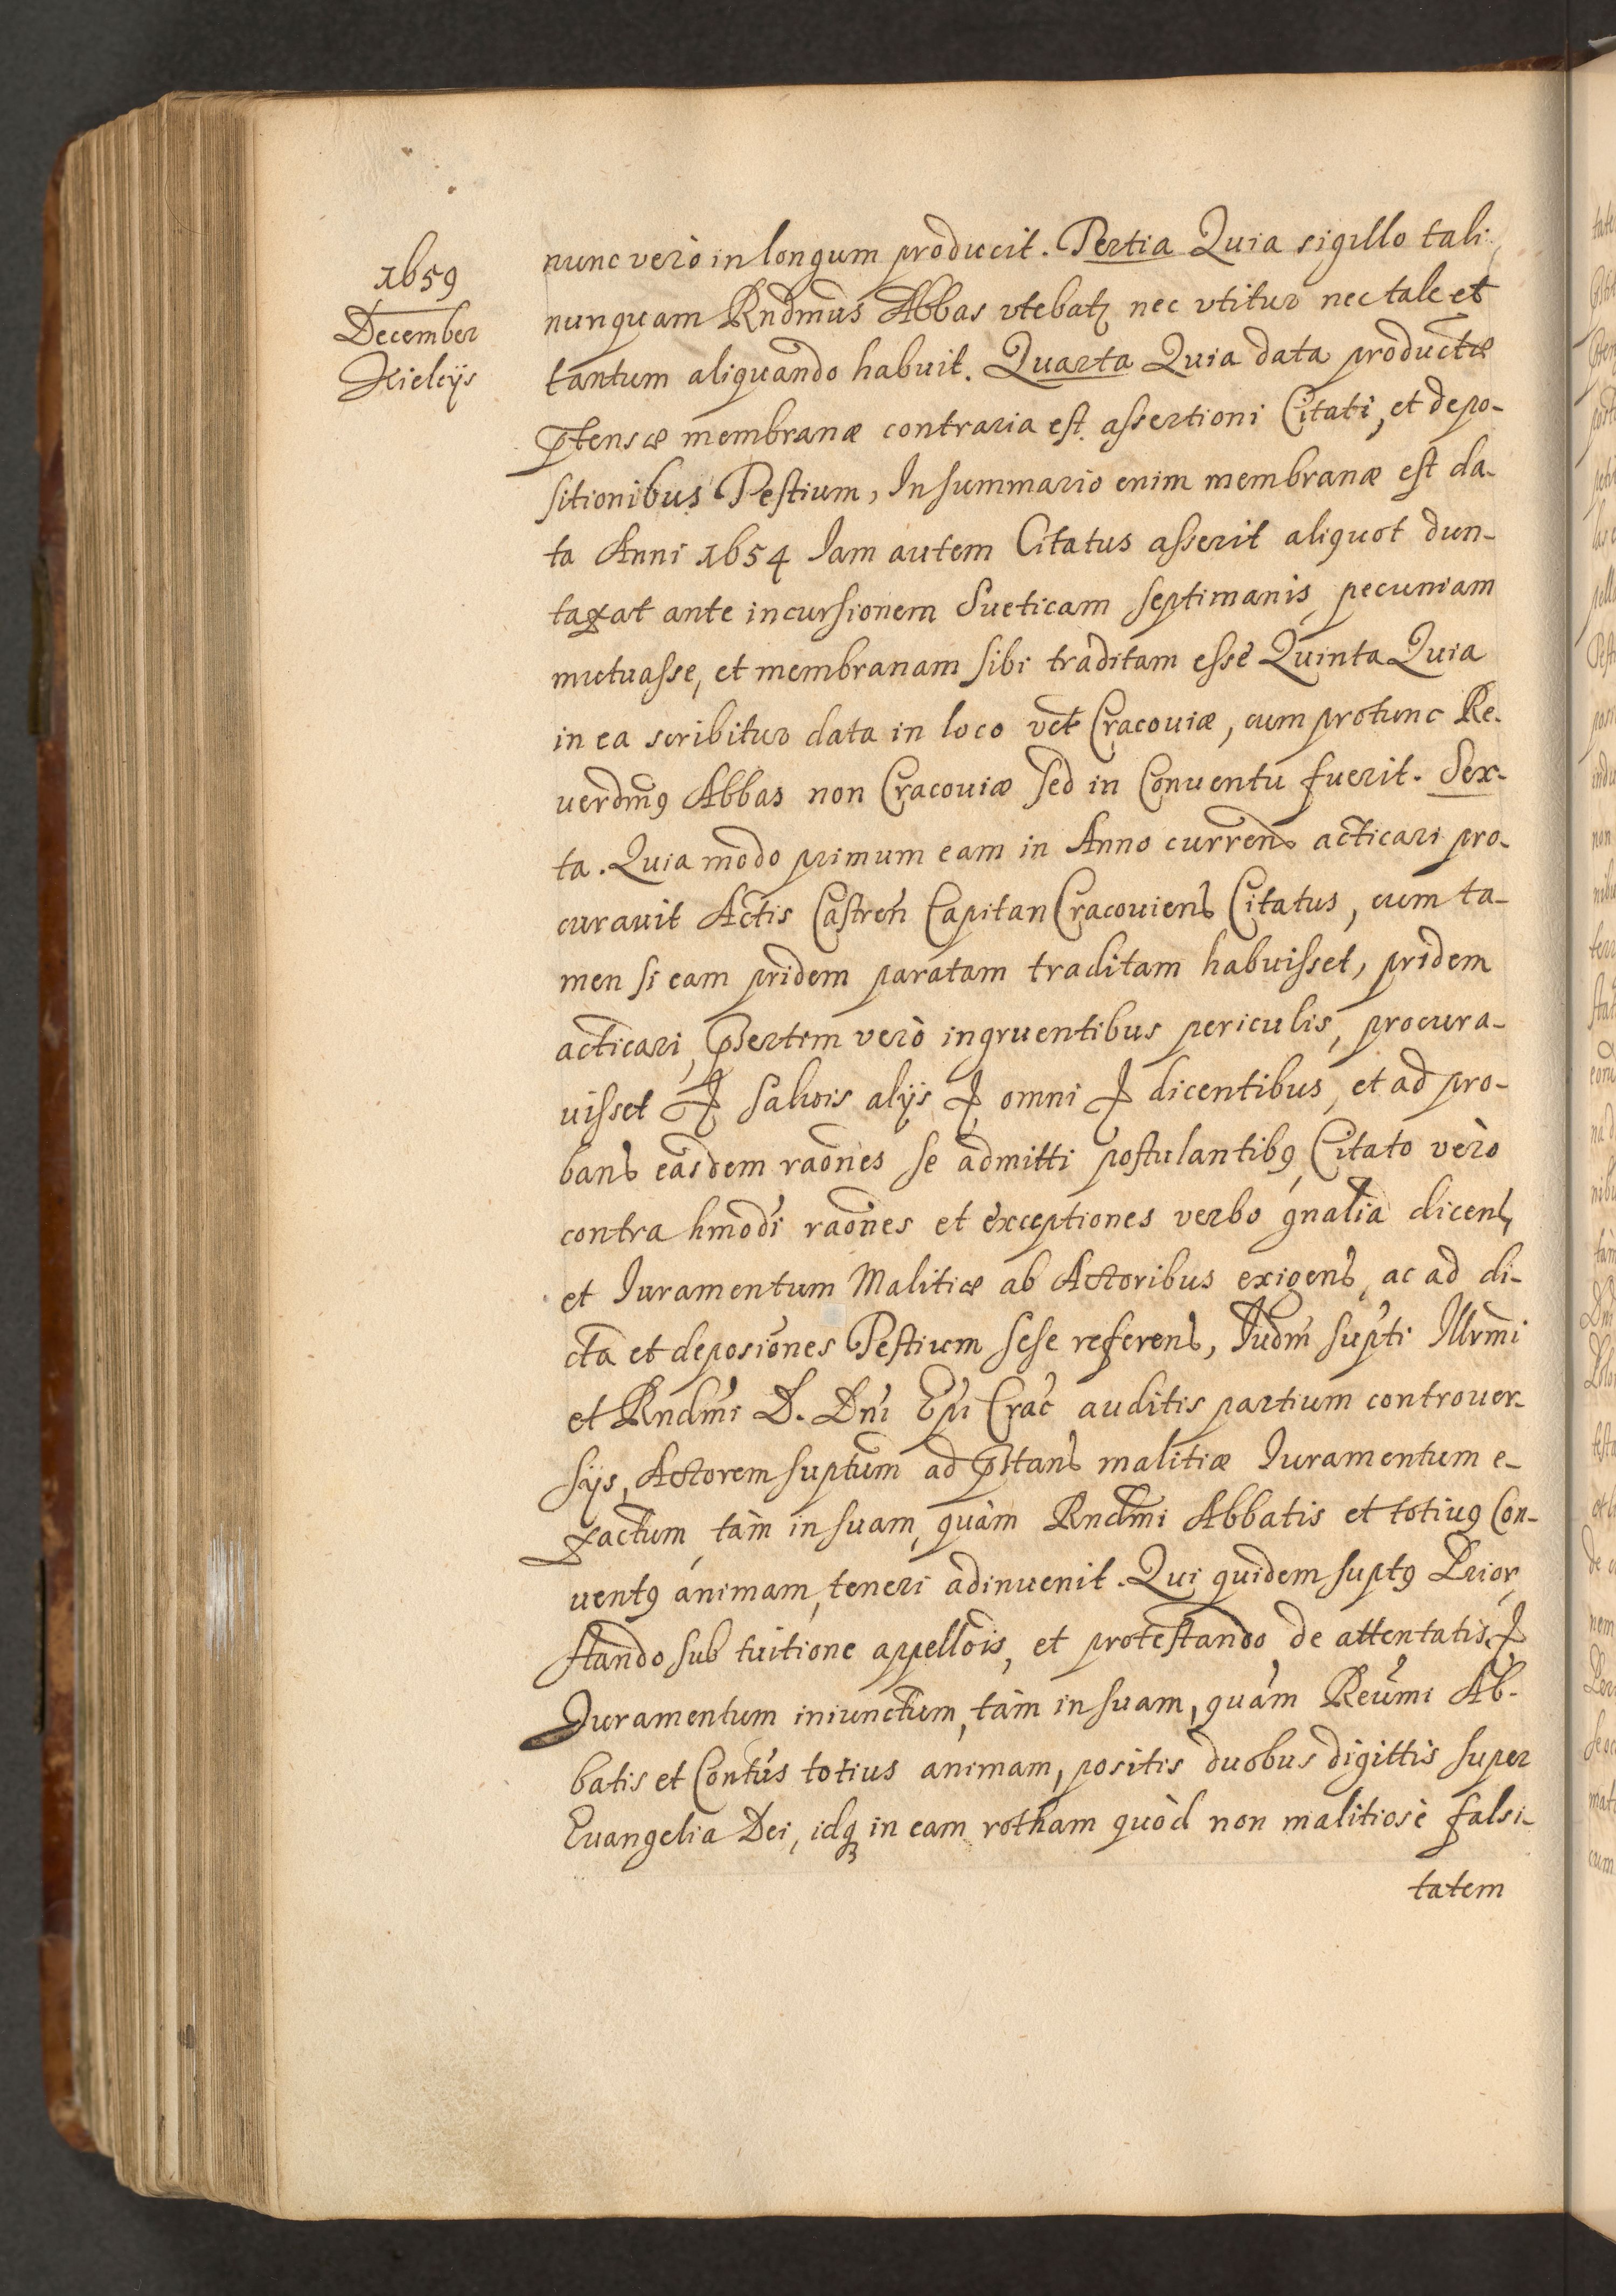 1659
December
Kielcijs
nunc verò in longum producit. Tertia Quia sigillo tali
nunquam Rndmus Abbas vtebatz nec vtitur nec tale et
tantum aliquando habuit. Quarta Quia data productæ
ꝓtensæ membranæ contraria est assertioni Citati, et depo-
sitionibus Testium, In summario enim membranæ est da-
ta Anni 1654 Iam autem Citatus asserit aliquot dun-
taxat ante incursionem Sueticam septimanis, pecuniam
mutuasse, et membranam sibi traditam esse Quinta Quia
in ea scribitur data in loco vet Cracouiæ, cum protunc Re-
uerdmꝰ Abbas non Cracouiæ sed in Conuentu fuerit. Sex-
ta. Quia modo primum eam in Anno currens acticari pro-
curauit Actis Castren Capitan Cracouiens Citatus, cum ta-
men si eam pridem paratam traditam habuisset, pridem
acticari, ꝓsertim verò ingruentibus periculis, procura-
uisset salvis alijs omni dicentibus, et ad pro-
bans easdem raōnes se admitti postulantibꝰ, Citato verò
contra hmodi raōnes et exceptiones verbo gnalia dicens,
et Iuramentum Malitiæ ab Actoribus exigens, ac ad di-
cta et deposiōnes Testium sese referens, Iudm supti Illrmi
et Rndmi D. Dni Epi Crac auditis partium controuer-
sijs, Actorem suptum ad ꝓstans malitiæ Iuramentum e-
xactum, tàm in suam, quàm Rndmi Abbatis et totiuꝰ Con-
uentꝰ animam, teneri adinuenit. Qui quidem suptꝰ Prior,
stando sub tuitione appellōis, et protestando de attentatis
Iuramentum iniunctum, tàm in suam, quàm Reumi Ab-
batis et Contus totius animam, positis duobus digittis super
Euangelia Dei, idqꝫ in eam rotham quòd non malitiosè falsi-
tatem